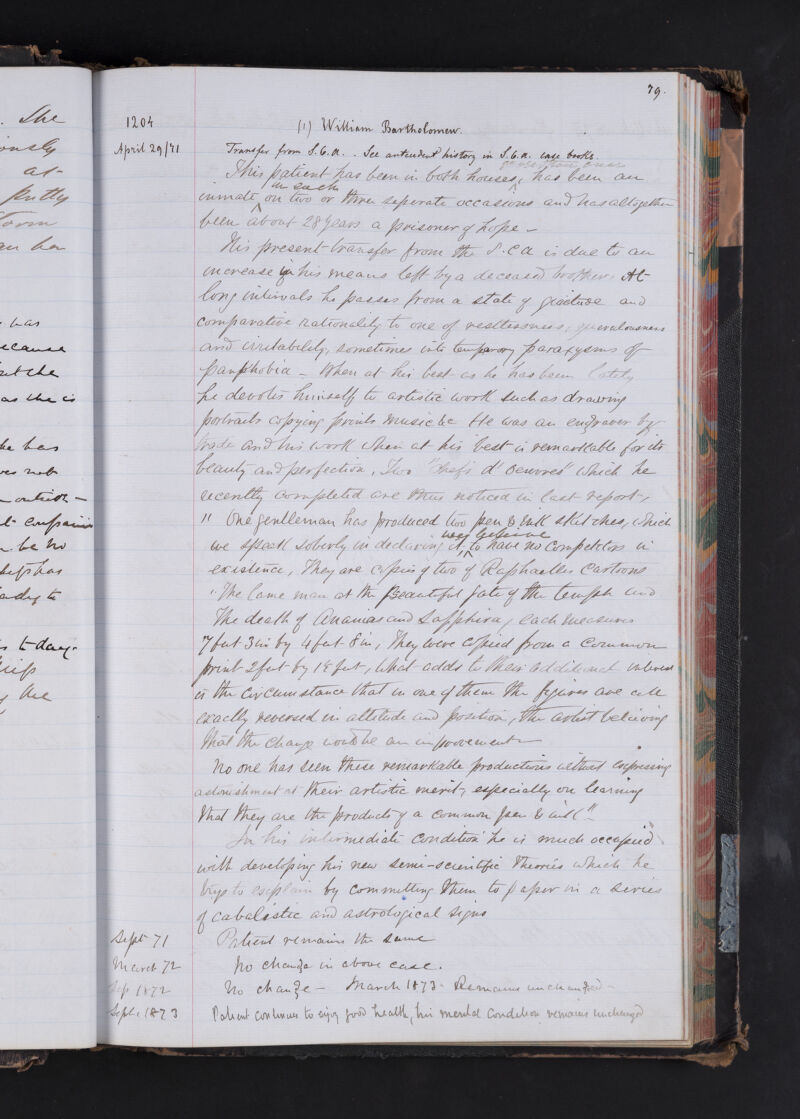 . She
79.
1204
(1) William Bartholomew.
April 29/71
Transfer from S.C.A. . See antecedent history in S.C.A. case books.
This patient has been in both houses, has been an
in each
inmate on two or three seperate occasions and has altogether
been about 28 years a prisoner of hope –
His present transfer from the S.C.A is due to an
increase in his means left by a deceased brother. At
long intervals he passes from a state of quietude and
comparative rationality to one of restlessness, querulousness
and irritability, sometimes into temporary paraxysms of
panphobia – When at his best as he has been lately
he devotes himself to artistic work such as drawing
portraits copying prints music &c He was an engraver by
trade and his work when at his best is remarkable for its
beauty and perfection, Two "Chefs d'Oeuvres" which he
recently completed are thus noticed in last report,
" One gentleman has produced two pen & ink sketches, which
we speak soberly in declaring to have no competitors in
existence, They are copies of two of Raphaelles Cartoons
"The lame man at the Beautiful gate of the temple and
The death of Ananias and Sapphira, each measures
7 feet 3 in by 4 feet 8 in, They were copied from a common
print 2 feet by 1 foot, What adds to their additional interest
is the circumstance that in one of them the figures are all
exactly reversed in attitude and position, the artist believing
that the change would be an improvement –
No one has seen these remarkable productions without expressing
astonishment at their artistic merit, especially on learning
that they are the products of a common pen & ink"
In his intermediate condition he is much occupied
with developing his new semi-scientific theories which he
trys to explain by committing them to paper in a series
of cabalistic and astrological signs
Sept 71 Patient remains the same
March 72 No change in above case.
Sep 1872 No change – March 1873. Remains unchanged –
Septr 1873 Patient continues to enjoy good health, his mental condition remains unchanged